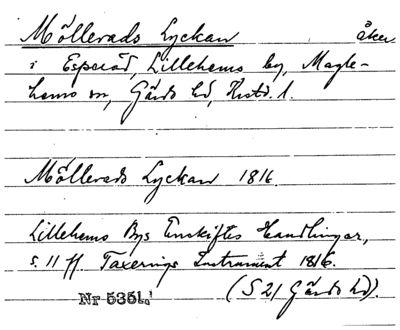 Möllerads Lyckan åker
i Esperöd, Lillehems by, Magle-
hems sn, Gärds hd, Krstd. l.
Möllerads Lyckan 1816.
Lillehems Bys Enskiftes Handlingar,
s. 11 ff. Taxerings Instrument 1816.
(S 21 Gärds hd).
Nr 5351.